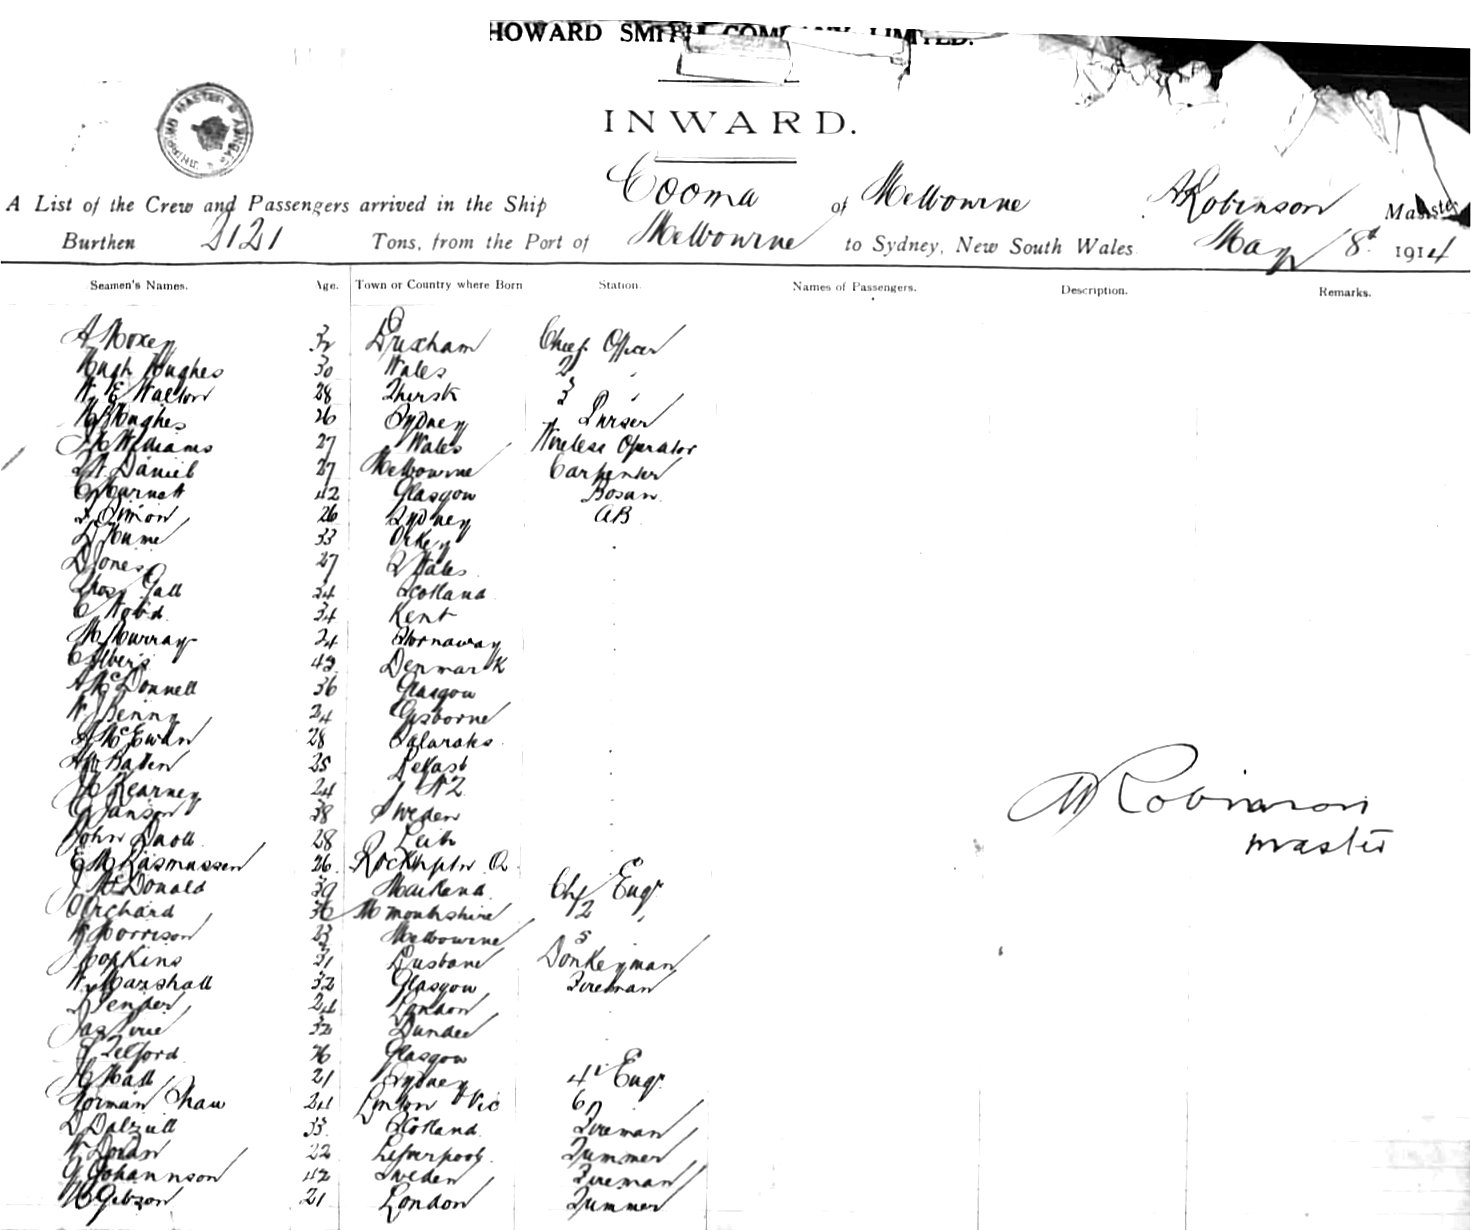 HOWARD SMITH COMPANY LIMITED.
INWARD.
A List of the Crew and Passengers arrived in the Ship Cooma of Melbourne A Robinson Master
Burthen 2121 Tons, from the Port of Melbourne to Sydney, New South Wales May 8th 1914
Seamen's Names. Age. Town or Country where Born Station. Names of Passengers. Description. Remarks.
A Moxey 32 Brixham Chief Officer
Hugh Hughes 30 Wales 2
W E Walton 28 Thirsk 3
Hughes 26 Sydney Purser
Williams 27 Wales Wireless Operator
Daniel 27 Melbourne Carpenter
42 Glasgow Bosun
Simon 26 Sydney AB
D Hume 33
D Jones 27 Wales
Thos Gall 24 Scotland
C 34 Kent
M Murray 24 Stornaway
C Albers 42 Denmark
A McDonnell 36 Glasgow
W J Kenny 24 Gisborne
McEwan 28
25 Belfast
Kearney 24 NZ
Janson 38 Sweden
John 28 Leith
Rasmussen 26 Rockhptn Q
J McDonald 39 Chf Engr
Orchard 36 Mmouthshire 2
W Morrison 23 Melbourne 3
J Hopkins 21 Brisbane Donkeyman
W Marshall 32 Glasgow Fireman
24 London
Jas Pirie 32 Dundee
Telford 26 Glasgow
H Hall 21 Sydney 4th Engr
Norman Shaw 24 Linton Vic
D Dalziell 33 Scotland Fireman
W Doran 22 Liverpool Trimmer
G Johannson 42 Sweden Fireman
Gibson 21 London Trimmer
A Robinson
master